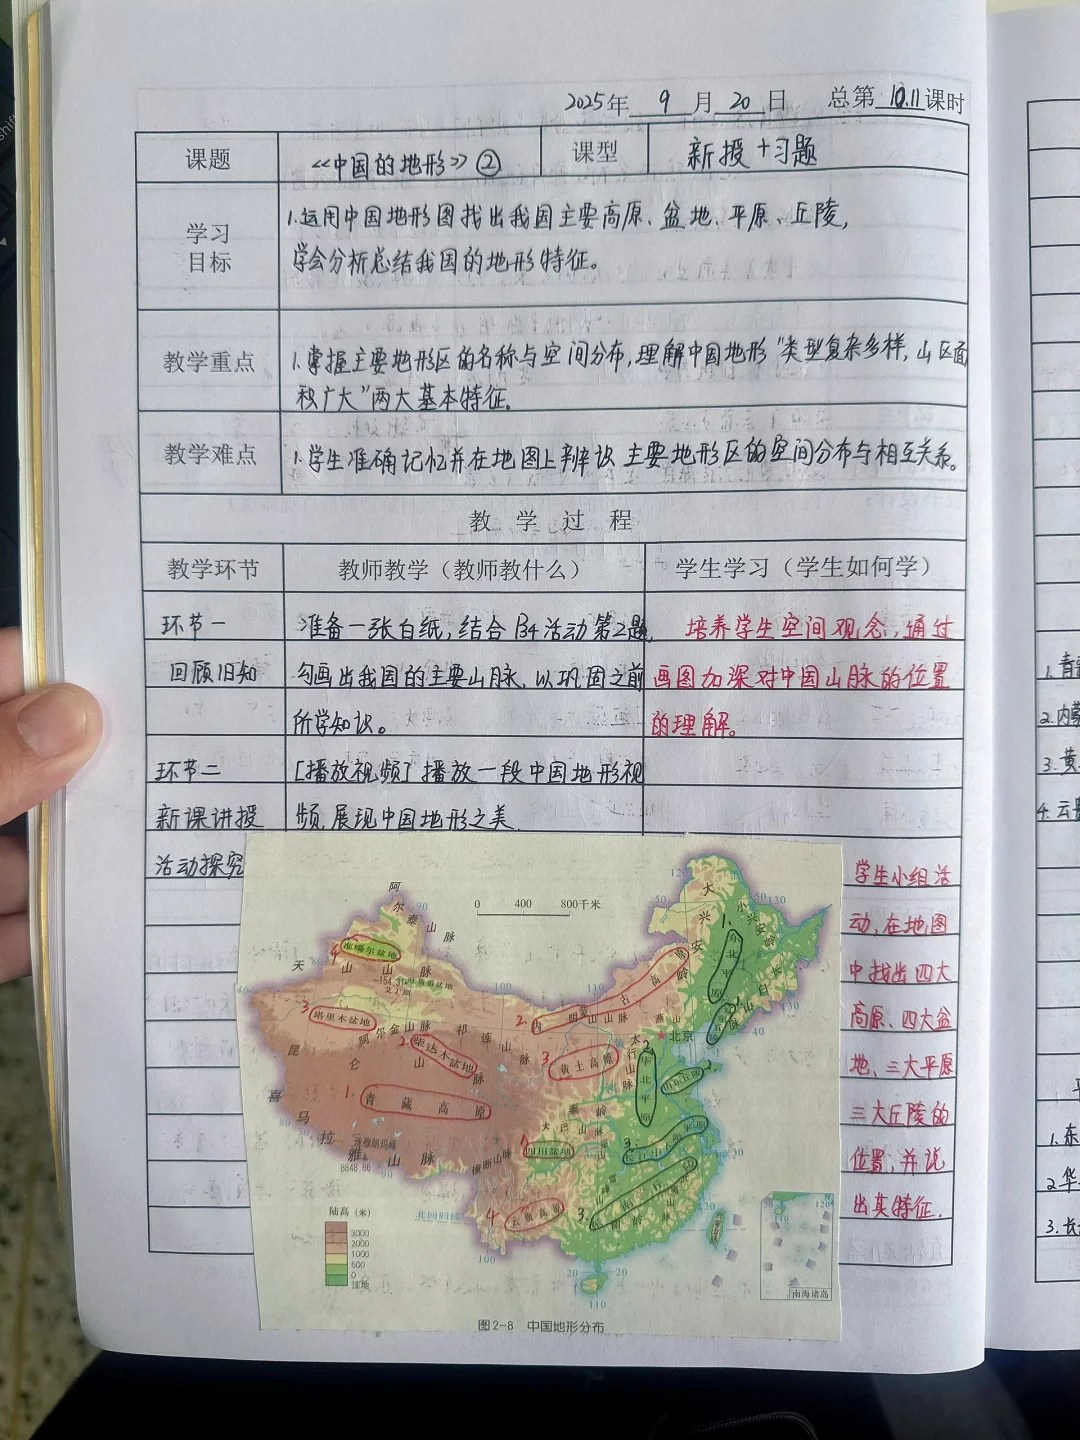 2025年 9 月 20 日 总第 10.11 课时
课题 《中国的地形》② 课型 新授+习题
学习目标
1.运用中国地形图找出我国主要高原、盆地、平原、丘陵,
学会分析总结我国的地形特征。
教学重点
1.掌握主要地形区的名称与空间分布,理解中国地形"类型复杂多样,山区面
积广大"两大基本特征。
教学难点
1.学生准确记忆并在地图上辨识主要地形区的空间分布与相互关系。
教 学 过 程
教学环节 教师教学(教师教什么) 学生学习(学生如何学)
环节一 准备一张白纸,结合P34活动第2题, 培养学生空间观念,通过
回顾旧知 勾画出我国的主要山脉,以巩固之前 画图加深对中国山脉的位置
所学知识。 的理解。
环节二 [播放视频] 播放一段中国地形视
新课讲授 频,展现中国地形之美.
活动探究
学生小组活
动,在地图
中找出四大
高原、四大盆
地、三大平原
三大丘陵的
位置,并说
出其特征.
0 400 800千米
阿尔泰山脉
4. 准噶尔盆地
天山山脉
-154.31 吐鲁番盆地
艾丁湖
3. 塔里木盆地
阿尔金山脉
祁连山脉
昆仑山脉
2. 柴达木盆地
1. 青藏高原
喜马拉雅山脉
珠穆朗玛峰
8848.86
横断山脉
2. 内蒙古高原
阴山山脉
燕山
北京
大兴安岭
小兴安岭
长白山
1. 东北平原
太行山脉
3. 黄土高原
2. 华北平原
山东丘陵
秦岭
大巴山脉
巫山
1. 四川盆地
3. 长江中下游平原
4. 云贵高原
3. 东南丘陵
南岭
北回归线
陆高(米)
3000
2000
1000
500
0
洼地
南海诸岛
图2-8 中国地形分布
1.青
2.内蒙
3.黄
4.云贵
1.东
2.华
3.长